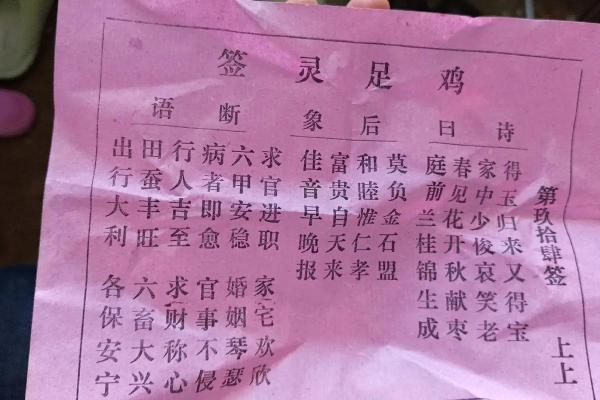 鸡足灵签
第玖拾肆签
上上
诗曰
得玉归来又得宝
家中少俊哀笑老
春见花开秋献枣
庭前兰桂锦生成
后象
莫负金石盟
和睦惟仁孝
富贵自天来
佳音早晚报
断语
求官进职
六甲安稳
病者即愈
行人吉至
田蚕丰旺
出行大利
家宅欢欣
婚姻琴瑟
官事不侵
求财称心
六畜大兴
各保安宁